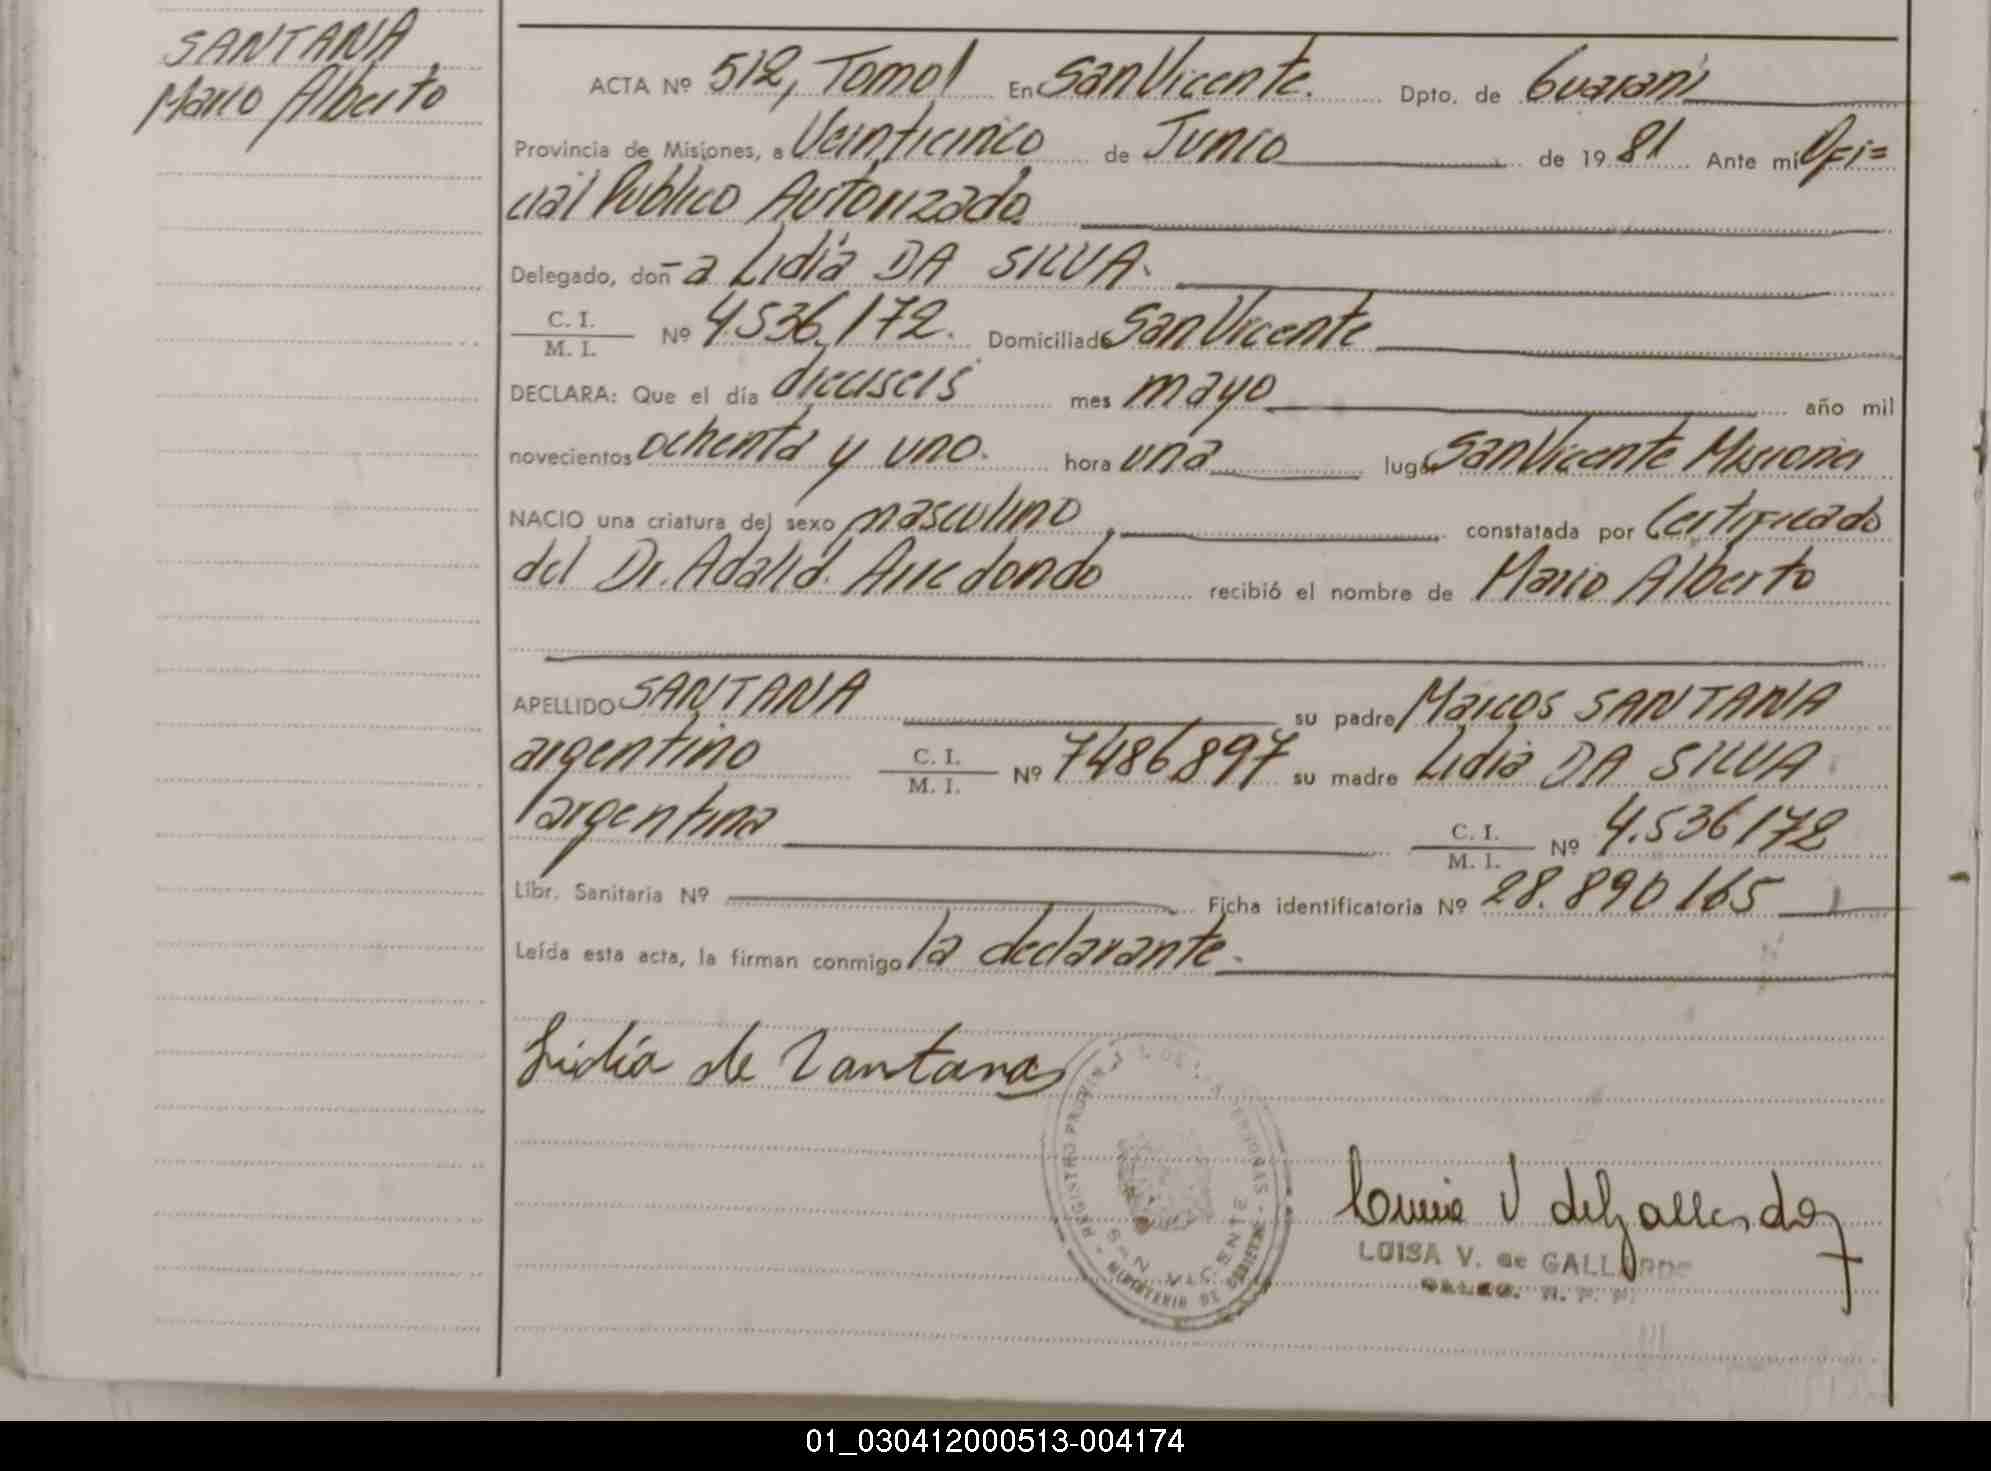 SANTANA
Mario Alberto
ACTA Nº 512, Tomo I En San Vicente. Dpto. de Guaraní
Provincia de Misiones, a Veinticinco de Junio de 19 81 Ante mi Ofi=
cial Público Autorizado
Delegado, doñ-a Lidia DA SILVA.
C. I. / M. I. Nº 4.536.172. Domiciliado San Vicente
DECLARA: Que el día dieciseis mes mayo año mil
novecientos ochenta y uno. hora una lugar San Vicente Misiones
NACIO una criatura del sexo masculino, constatada por Certificado
del Dr. Adalid. Arredondo recibió el nombre de Mario Alberto
APELLIDO SANTANA su padre Marcos SANTANA
argentino C. I. / M. I. Nº 7486897 su madre Lidia DA SILVA
argentina C. I. / M. I. Nº 4.536172
Libr. Sanitaria Nº Ficha identificatoria Nº 28.890165
Leída esta acta, la firman conmigo la declarante.
Lidia de Santana
REGISTRO PROVINCIAL DE LAS PERSONAS
SAN VICENTE
MINISTERIO DE GOBIERNO
V de Gallardo
LUISA V. de GALLARDO
R. P. P.
01_030412000513-004174